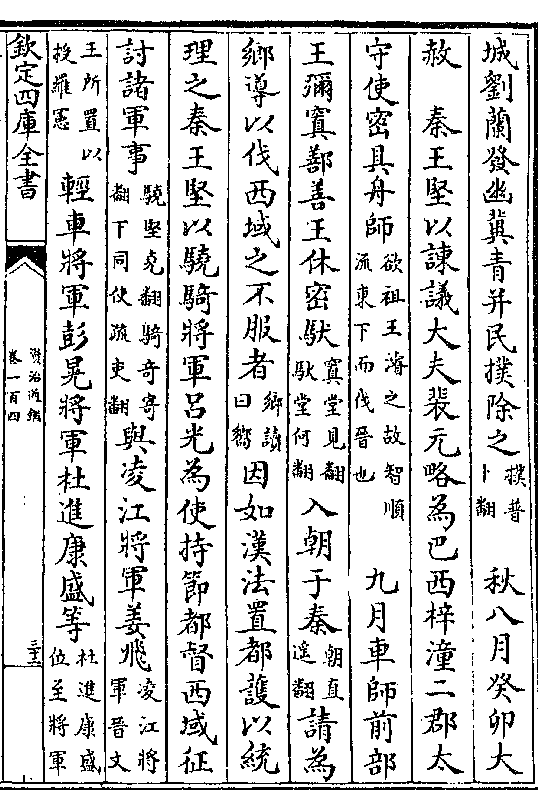 城劉蘭發幽冀青并民撲除之撲普卜翻 秋八月癸卯大
赦 秦王堅以諫議大夫裴元略為巴西梓潼二郡太
守使密具舟師欲祖王濬之故智順流東下而伐晉也 九月車師前部
王彌寘鄯善王休密馱寘堂見翻馱堂何翻入朝于秦朝直遥翻請為
鄉導以伐西域之不服者鄉讀曰嚮因如漢法置都護以統
理之秦王堅以驍騎將軍呂光為使持節都督西域征
討諸軍事驍堅堯翻騎奇寄翻下同使疏吏翻與凌江將軍姜飛凌江將軍晉文
王所置以授羅憲輕車將軍彭晃將軍杜進康盛等杜進康盛位至將軍
欽定四庫全書
資治通鑑
卷一百四
三十三